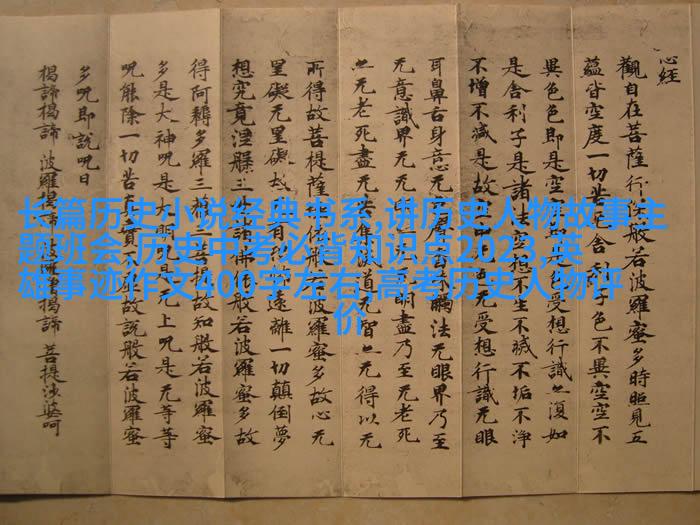 心经
觀自在菩薩行深般若波羅蜜多時照見五
蘊皆空度一切苦厄舍利子色不異空空不
異色色即是空空即是色受想行識亦復如
是舍利子是諸法空想不生不滅不垢不淨
不增不減是故空中无色无受想行識无眼
耳鼻舌身意无色聲香味觸法无眼界乃至
无意識界无无明盡乃至无老死
亦无老死盡无苦集滅道无智亦无得以无
所得故菩提薩埵依般若波羅蜜多故心无
罣礙无罣礙故遠離一切顛倒夢
想究竟涅槃三世諸佛依般若波羅蜜多故
得阿耨多羅三藐三菩提故知般若波羅蜜
多是大神呪是大明呪是无上呪是无等等
呪能除一切苦真實不虛故說般若波羅蜜
多呪即說呪曰
揭諦揭諦 波羅揭諦 波羅僧揭諦 菩提薩婆呵
长篇历史小说经典书系,讲历史人物故事主
题班会,历史中考必背知识点2023,英
雄事迹作文400字左右,高考历史人物评
价